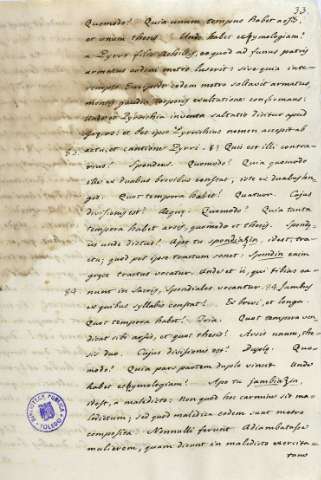 33
Quomodo? Quia unum tempus habet arsis,
et unum thesis. Unde habet ethymologiam?
a Pyrro filio Achillis, eo quod ad funus patris
armatus eodem metro luserit: sive quia inte-
rempto Euripilo eodem metro saltavit armatus
mentis gaudia corporis exultatione confirmans:
unde et Pyrrichia inventa saltatio dicitur apud
et hoc ipse Pyrrichius nomen accepit ab
actu, et cantione Pyrri. 83 Quis est illi contra-
rius? Spondeus. Quomodo? Quia quomodo
ille ex duabus brevibus constat, iste ex duabus lon-
gis. Quot tempora habet? Quatuor. Cujus
divisionis est? Aequae. Quomodo? Quia tanta
tempora habet arsis, quomodo et thesis. Spond-
eus unde dictus? Apo tu spondiazin, idest, trac-
tu, quod per ipse tractum sonet: Spondin enim
grece tractus vocatur. Unde et ii, qui tibias ca-
nunt in sacris, Spondiales vocantur. 84 Jambus
84. ex quibus syllabis constat? Ex brevi, et longa
Quot tempora habet? Tria. Quot tempora ven-
dicat sibi arsis, et quot thesis? Arsis unum, the-
sis duo. Cujus divisionis est? Duplae. Quo-
modo? Quia pars partem duplo vincit. Unde
habet ethymologiam? Apo tu jambiazin,
idest, a maledicto: non quod hoc carmine sit ma-
ledictum, sed quod maledica eodem sunt metro
composita. Nonnulli ferunt
mulierem, quam dicunt in maledicto exercita-
tam
BIBLIOTECA PUBLICA
TOLEDO